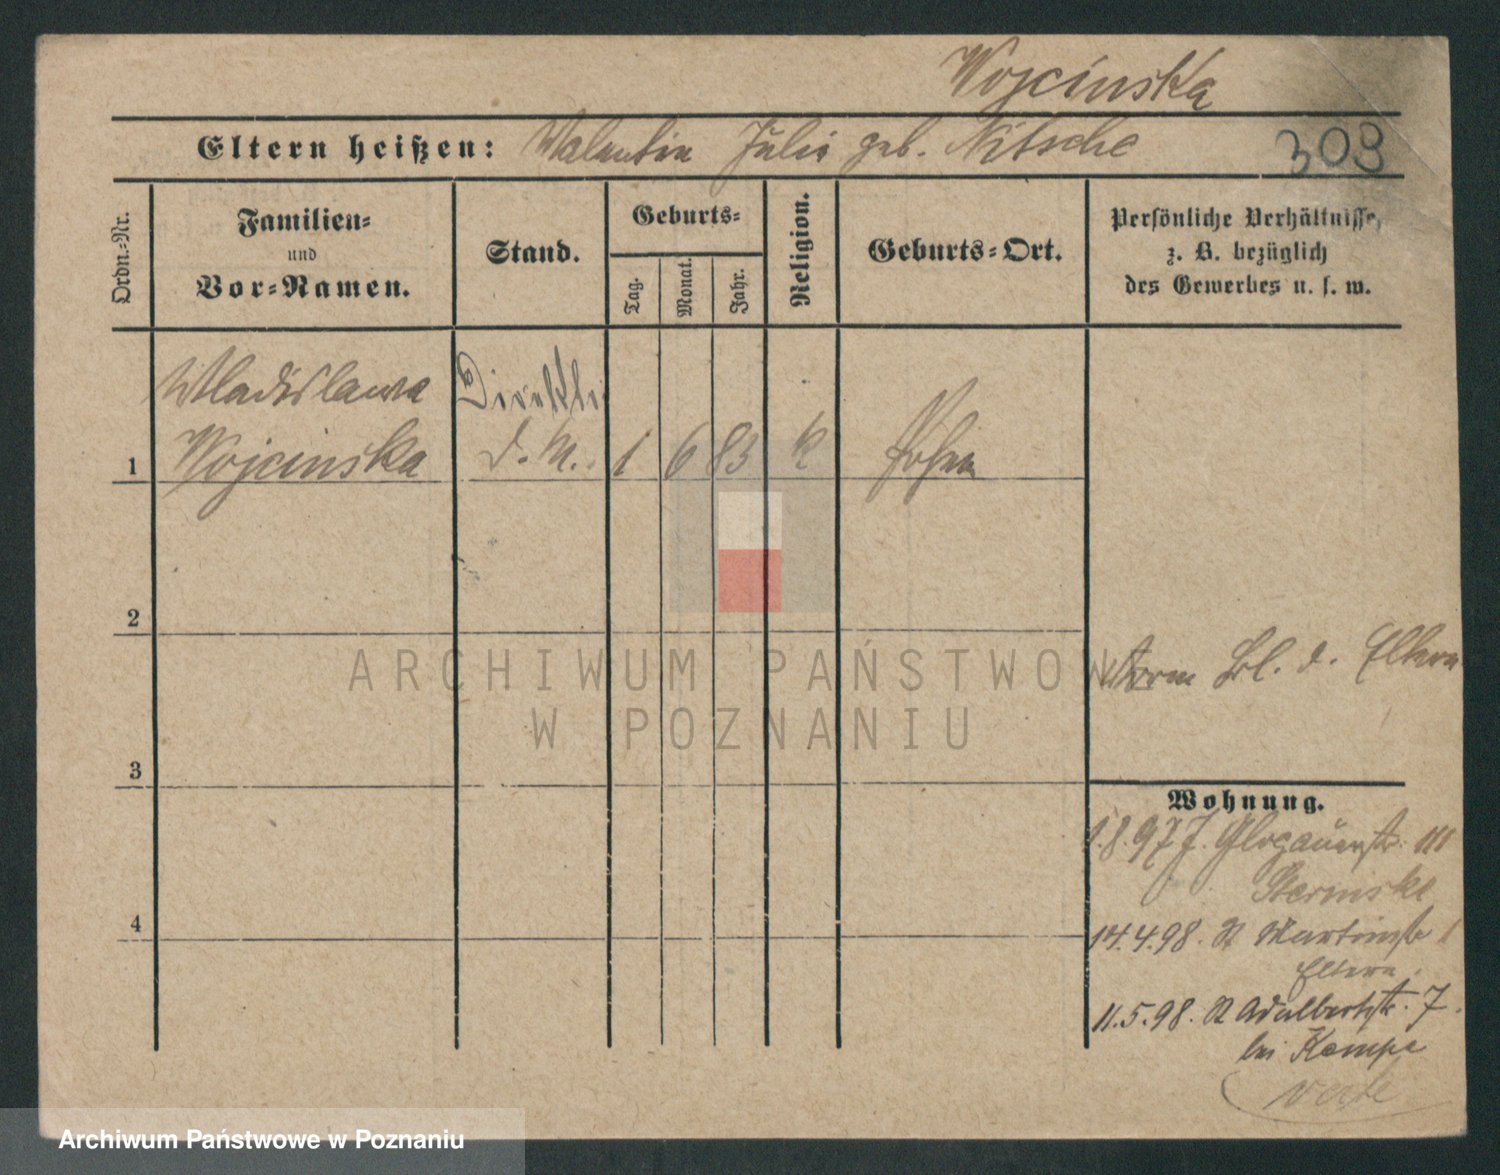 Wojcinska
Eltern heißen: Valentin Julie geb. Nitsche
308
Ordn.-Nr.
Familien-
und
Vor-Namen.
Stand.
Geburts-
Tag.
Monat.
Jahr.
Religion.
Geburts-Ort.
Persönliche Verhältnisse,
z. B. bezüglich
des Gewerbes u. s. w.
Wladislawa
1 Wojcinska d. M. 1 6 83 k Posen
2
ARCHIWUM PAŃSTWOWE
W POZNANIU
d. Eltern
3
Wohnung.
1.8.97 J. Glogauerstr. 111
4
14.4.98. St Martinstr
Eltern.
11.5.98. St Adalbertstr. 7.
bei Kempe
Archiwum Państwowe w Poznaniu